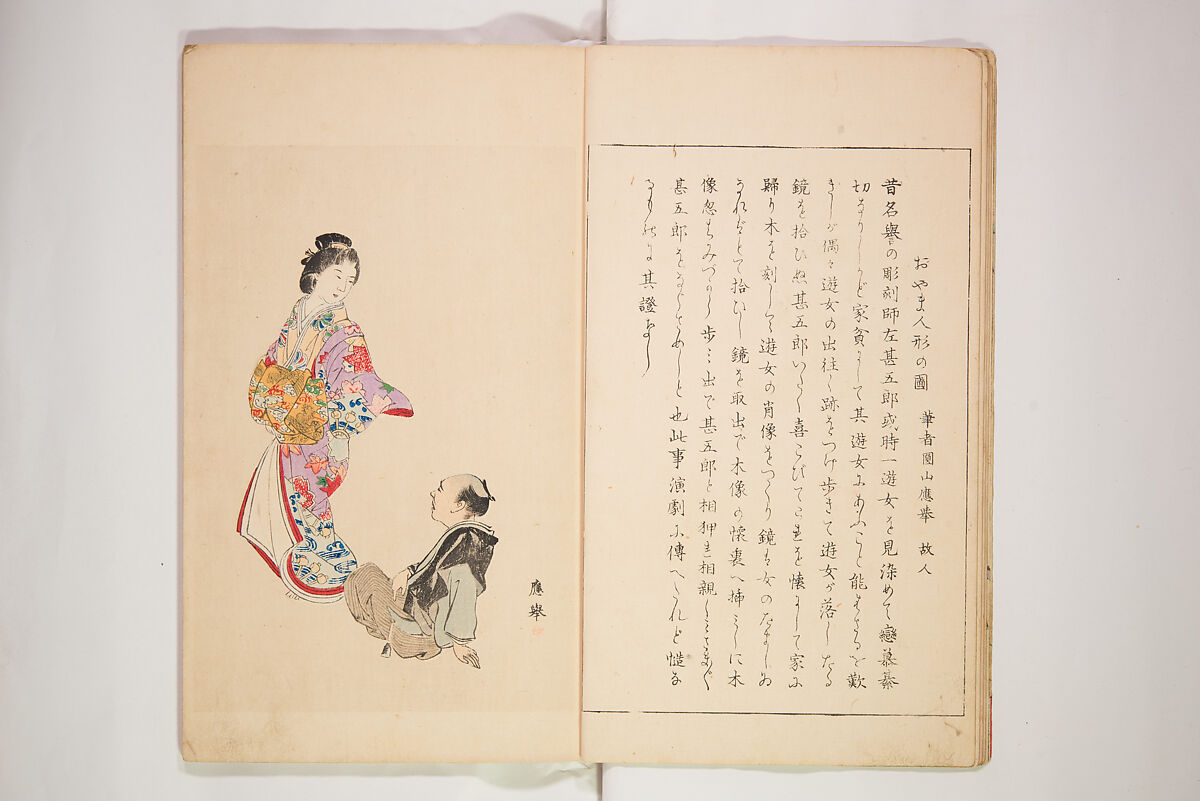 おやま人形の圖　筆者圓山應擧　故人
昔名譽の彫刻師左甚五郎或時一遊女を見染めて戀慕綦
切なりしかど家貧にして其遊女にあふこと能はざるを歎
きしが偶々遊女の出往く跡をつけ歩きて遊女が落したる
鏡を拾ひぬ甚五郎いたく喜こびてこれを懐にして家に
歸り木を刻して遊女の肖像をつくり鏡は女のたましゐ
なればとて拾ひし鏡を取出で木像の懐裏へ挿みしに木
像忽ちみづから歩み出で甚五郎と相狎れ相親しみて
甚五郎をなぐさめしと也此事演劇に傳へたれど慥な
るものに其證なし
應擧